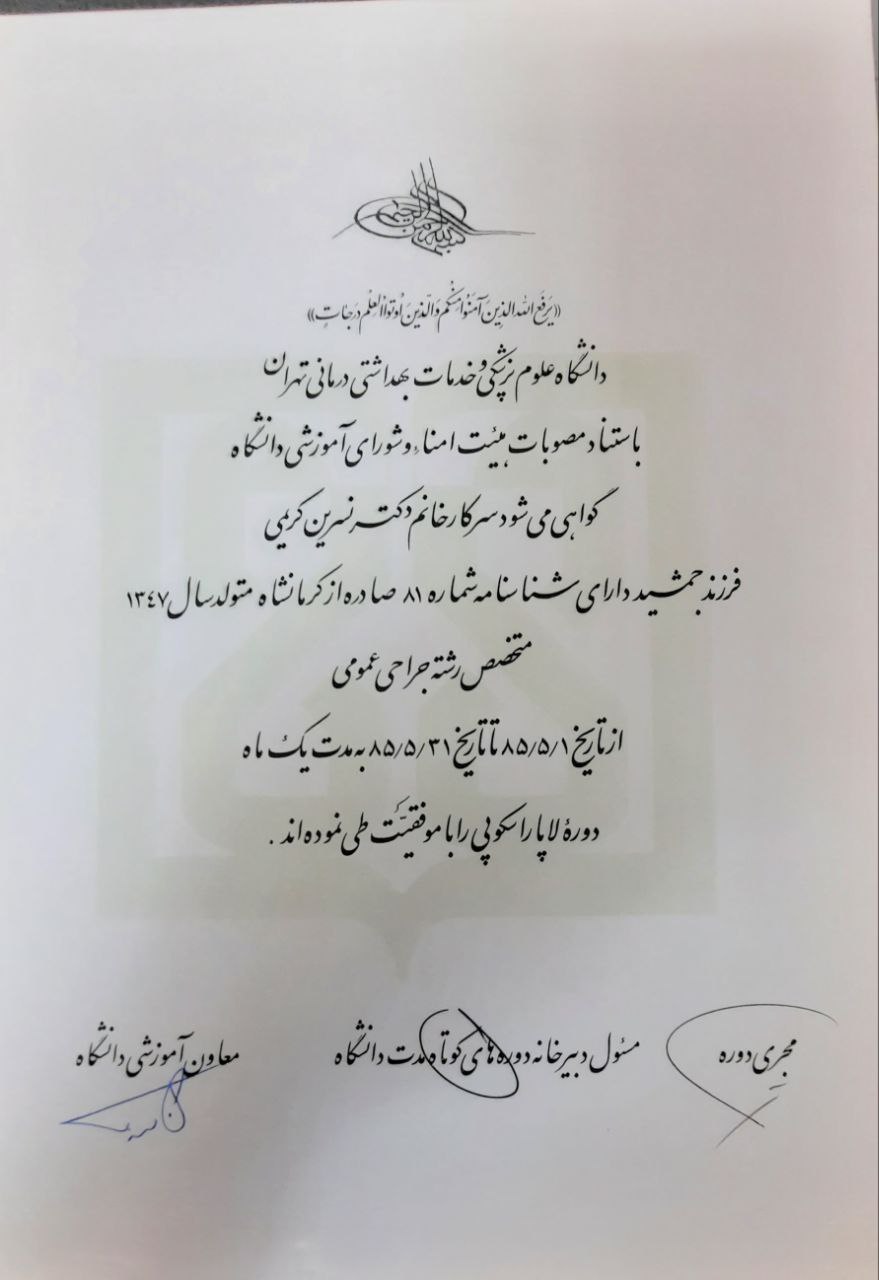 بسم الله الرحمن الرحیم
«یَرفَعِ اللهُ الذینَ آمَنُوا مِنکُم وَالّذینَ اُوتُوا العِلمَ دَرَجاتٍ»
دانشگاه علوم پزشکی و خدمات بهداشتی درمانی تهران
باستناد مصوبات هیئت امناء و شورای آموزشی دانشگاه
گواهی می شود سرکار خانم دکتر نسرین کریمی
فرزند جمشید دارای شناسنامه شماره ۸۱ صادره از کرمانشاه متولد سال ۱۳۴۷
متخصص رشته جراحی عمومی
از تاریخ ۸۵/۵/۱ تا تاریخ ۸۵/۵/۳۱ به مدت یک ماه
دورهٔ لاپاراسکوپی را با موفقیّت طی نموده اند.
مجری دوره
مسئول دبیرخانه دوره های کوتاه مدت دانشگاه
معاون آموزشی دانشگاه